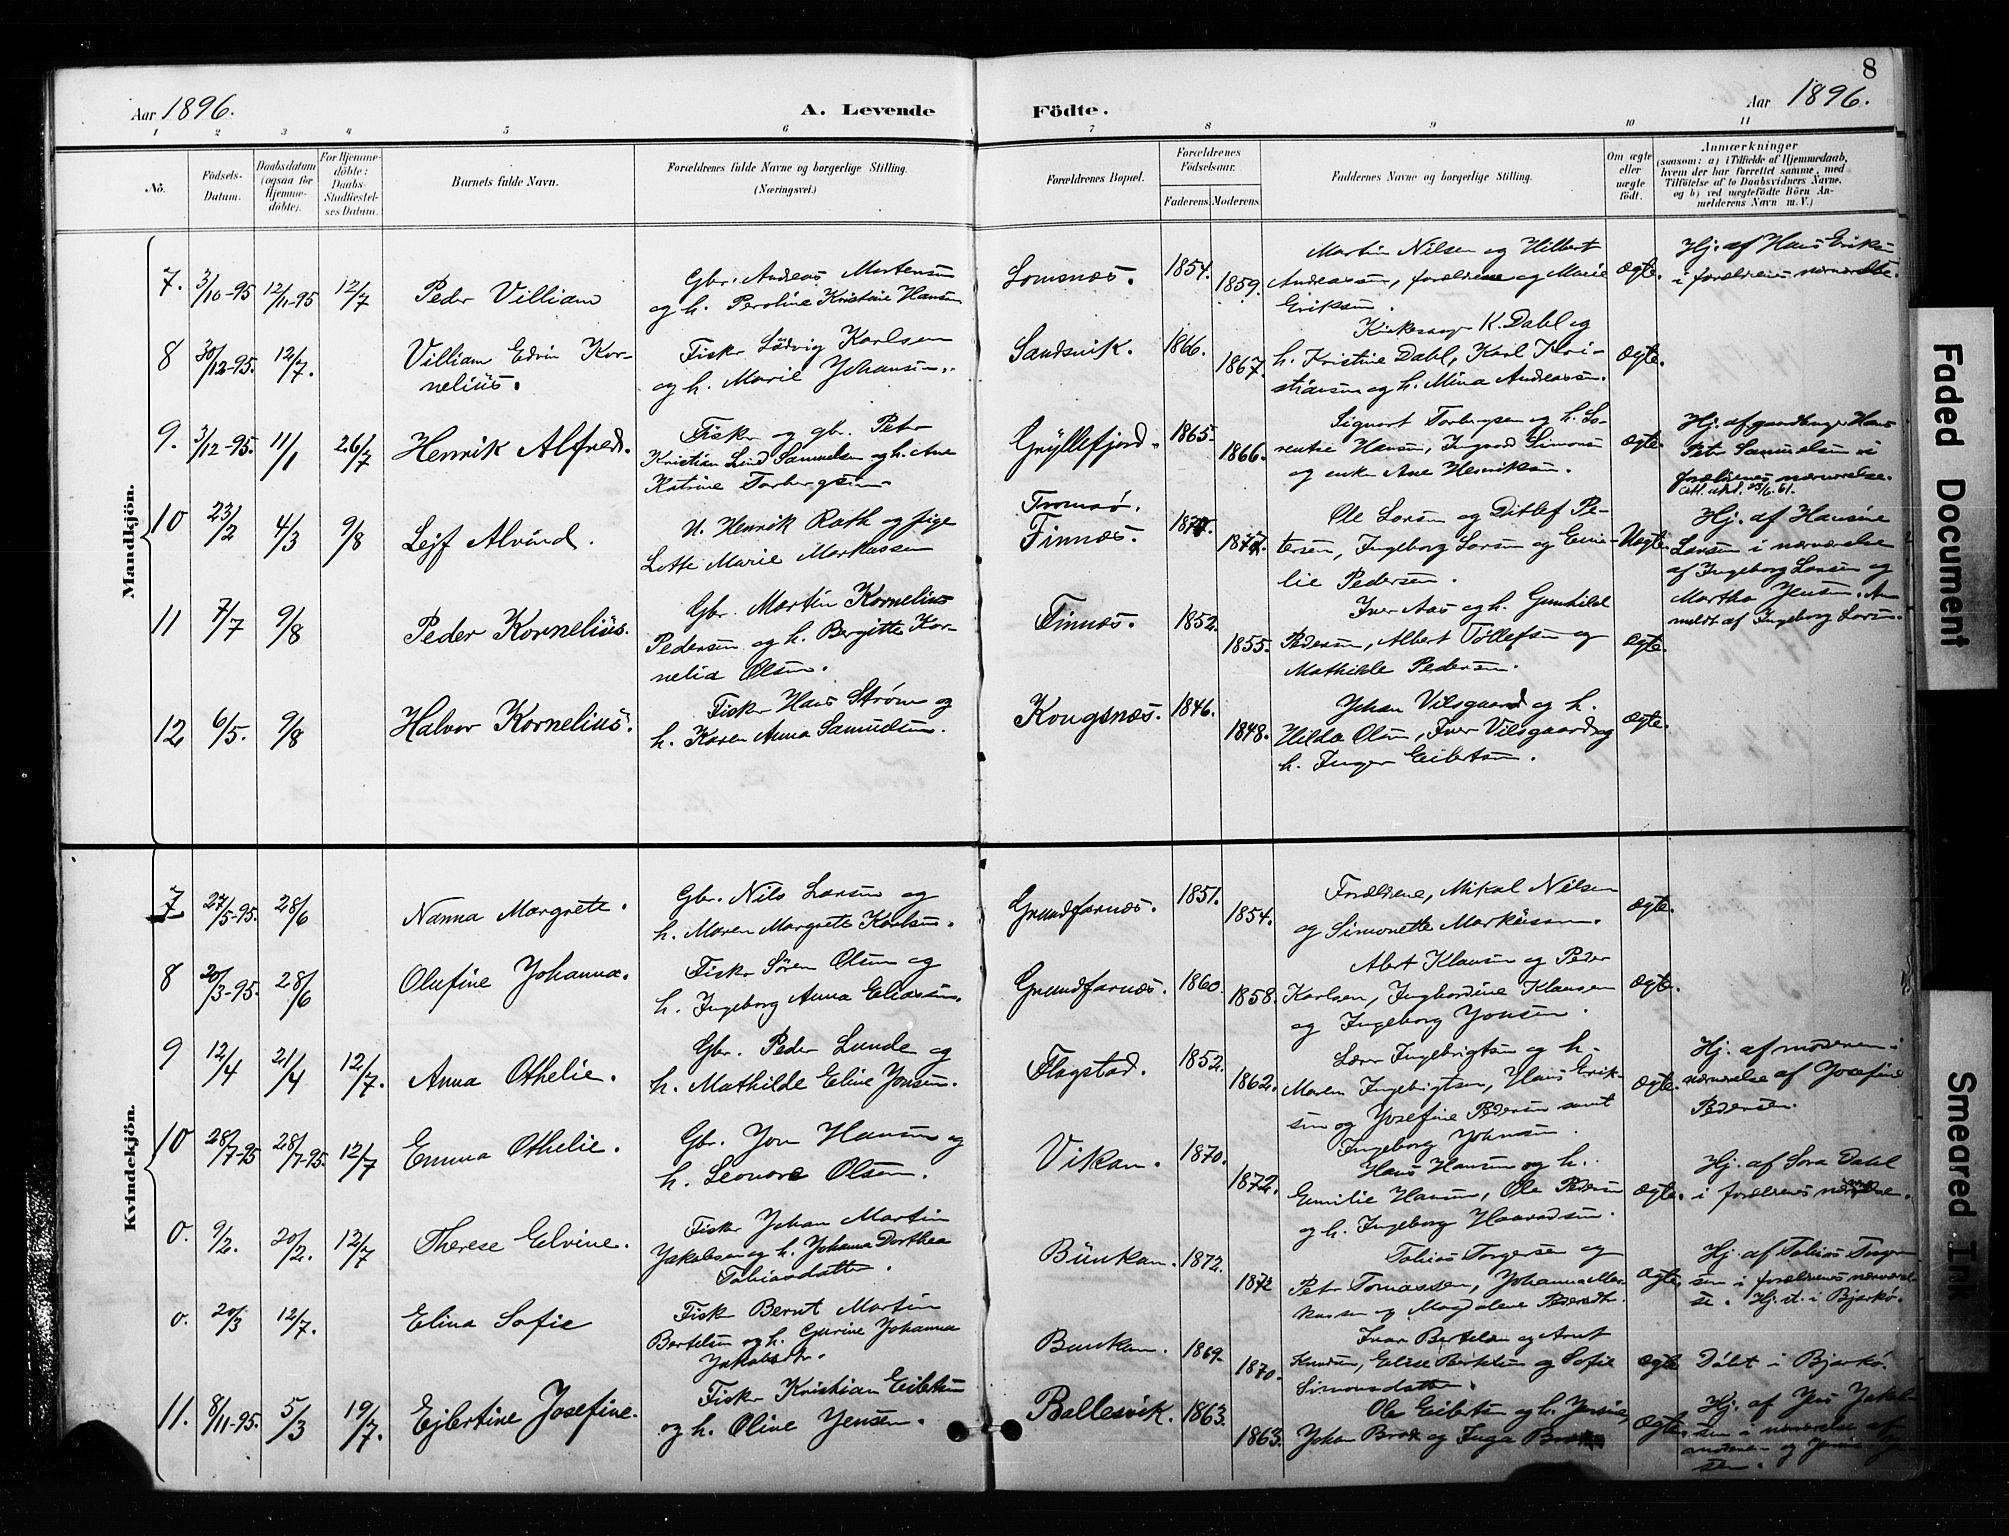 8
Aar 1896.
A. Levende
Födte.
Aar 1896.
1 2 3 4 5 6 7 8 9 10 11
No.
Födsels-
Datum.
Daabsdatum
(ogsaa for
Hjemme-
döbte).
For Hjemme-
döbte:
Daabs-
Stadfæstel-
ses Datum.
Barnets fulde Navn.
Forældrenes fulde Navne og borgerlige Stilling.
(Næringsvei.)
Forældrenes Bopæl.
Forældrenes
Födselsaar.
Faderens.
Moderens.
Faddernes Navne og borgerlige Stilling.
Om ægte
eller
uægte
födt.
Anmærkninger
(saasom: a) i Tilfælde af Hjemmedaab,
hvem der har forrettet samme, med
Tilföielse af to Daabsvidners Navne,
og b) ved uægtefödte Börn An-
melderens Navn m. V.)
Mandkjön.
7. 3/10-95 12/11-95 12/7 Peder Villiam
Gbr. Andreas Mortensen
og h. Peroline Kristine Hansen
Lomsnæs. 1854. 1859.
Martin Nilsen og Hilbert
Andreassen, forældrene og Marie
Eriksen.
Ægte.
Hj. af Hans Eriksen
i forældrenes nærværelse.
8 30/12-95. 12/7.
Villiam Edvin Kor-
nelius.
Fisker Ludvig Karlsen
og h. Marie Johansen.
Sandsvik. 1866. 1867.
Kirkesanger K. Dahl og
h. Kristine Dahl, Karl Kri-
stiansen og h. Mina Andreassen.
Ægte.
9. 3/12-95. 11/1 26/7 Henrik Alfred.
Fisker og gbr. Peter
Kristian Lind Samuelsen og h. Ane
Katrine Torbergsen
Gryllefjord. 1865. 1866.
Sigvart Torbergsen og h. Lo-
rentse Hansen, Ingvard Simonsen
og enke Ane Henriksen.
Ægte.
Hj. af gaardbruger Hans
Peter Samuelsen i
forældrenes nærværelse.
10 23/2 4/3 9/8 Lejf Alvind.
U. Henrik Rath og pige
Lotte Marie Markussen
Tromsø.
Finnæs.
Ole Larsen og Ditlef Pe-
tersen, Ingeborg Larsen og Emi-
lie Pedersen.
Uægte.
Hj. af Hansine
Larsen i nærværelse
af Ingeborg Larsen og
Martha Jensen. An-
meldt af Ingeborg Larsen.
11 7/7 9/8 Peder Kornelius.
Gbr. Martin Kornelius
Pedersen og h. Bergitte Kor-
nelia Olsen.
Finnæs. 1852. 1855.
Iver Aas og h. Gunhild
Pedersen, Albert Tollefsen og
Mathilde Pedersen.
Ægte.
12 6/5. 9/8 Halvor Kornelius.
Fisker Hans Strøm og
h. Karen Anna Samuelsen.
Kongsnæs. 1846. 1848.
Johan Vilsgaard og h.
Hilda Olsen, Iver Vilsgaard og
h. Inger Eibertsen.
Ægte.
Kvindekjön.
7 27/5-95. 28/6 Nanna Margrete.
Gbr. Nils Larsen og
h. Maren Margrete Karlsen.
Grundfarnæs. 1851. 1854.
Forældrene, Mikal Nilsen
og Simonette Markussen.
Ægte.
8 20/3-95. 28/6 Olufine Johanna.
Fisker Søren Olsen og
h. Ingeborg Anna Eliassen.
Grundfarnæs. 1860. 1858.
Abert Klausen og Peder
Karlsen, Ingbordine Klausen
og Ingeborg Jonsen.
Ægte.
9 12/4 21/4 12/7. Anna Othelie.
Gbr. Peder Lunde og
h. Mathilde Eline Jonsen.
Flagstad. 1852. 1862.
Ingebrigtsen og h.
Maren Ingebrigtsen, Hans Erik-
sen og Josefine Pedersen samt
Ingeborg Johnsen.
Ægte.
Hj. af moderen i
nærværelse af Josefine
Pedersen.
10 28/7-95 28/7-95. 12/7 Emma Othelie.
Gbr. Jon Hansen og
h. Leonore Olsen.
Vikan. 1870. 1872.
Hans Hansen og h.
Emilie Hansen, Ole Pedersen
og h. Ingeborg Haavadsen.
Ægte.
Hj. af Sara Dahl
i forældrenes nærværelse.
0. 9/2. 20/2. 12/7 Therese Elvine.
Fisker Johan Martin
Jakobsen og h. Johanna Dorthea
Tobiasdatter.
Bunkan. 1872. 1872
Tobias Torgersen og
Peter Tomassen, Johanna Mar-
kusen og Magdalene Pedersdtr.
Ægte.
Hj. af Tobias Torger-
sen i forældrenes nærværel-
se. Hj. st. i Bjarkø.
0. 20/3 12/7. Elina Sofie
Fisker Bernt Martin
Bertelsen og h. Gurine Johanna
Jakobsdtr.
Bunkan. 1869. 1870.
Ivar Bertelsen og Arnt
Knudsen, Elise Bertelsen og Sofie
Simonsdatter.
Ægte
Døbt i Bjarkø.
11. 8/11-95. 5/3 19/7. Ejlertine Josefine.
Fisker Kristian Eilertsen
og h. Oline Jensen.
Ballesvik. 1863. 1863.
Ole Eibertsen og h. Jensine,
Johan Brox og Inga Brox
Ægte.
Hj. af Jens Jakob-
sen i nærværelse af
Faded Document
Smeared Ink